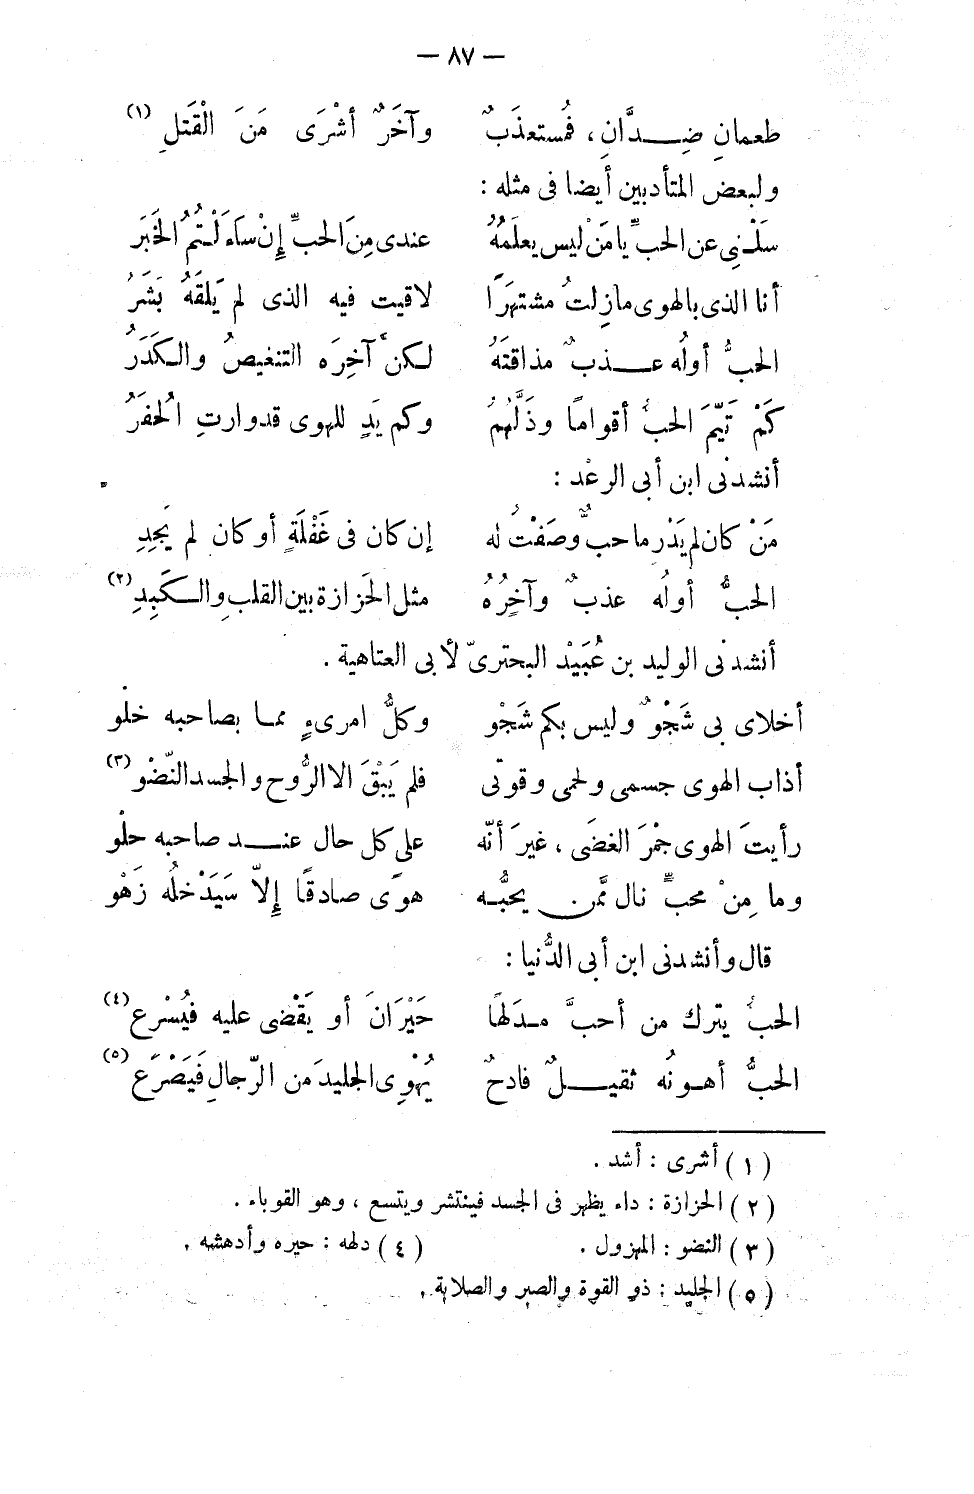 — ٨٧ —
طعمانِ ضِدَّانِ ، فمُستعذَبٌ وآخَرٌ أشْرَى مَنَ الْقَتلِ (١)
ولبعض المتأدبين أيضا فى مثله :
سَلْنِى عن الحبِّ يا مَنْ ليس يعلَمُهُ عندى مِنَ الحبِّ إِنْ ساءَلْتُمُ الخَبَرَ
أنا الذى بالهوى مازِلتُ مشتهرَا لاقيت فيه الذى لم يَلقَهُ بَشَرُ
الحبُّ أولُه عذبٌ مذاقتَهُ لكن آخِرَه التنغيصُ والكَدَرُ
كَمْ تَيّمَ الحبُّ أقوامًا وذَلَّهُمُ وكم يَدٍ للهوى قدوارتِ الُحفَرُ
أنشدنى ابن أبى الرعْد :
مَنْ كان لم يَدْرِ ما حبٌّ وصَفْتُ له إن كان فى غَفْلَةٍ أو كان لم يَجِدِ
الحبُّ أولُه عذبٌ وآخِرُهُ مثل الحَزازة بين القلبِ والكَبِدِ (٢)
أنشدنى الوليد بن عُبَيْد البحترىّ لأبى العتاهية .
أخلاى بى شَجْوٌ وليس بكم شَجْو وكلُّ امرىءٍ مما بصاحبه خلْو
أذاب الهوى جسمى ولحمى وقوتى فلم يَبْقَ الا الرُّوح والجسد النّضْو (٣)
رأيتَ الهوى جمْرَ الغضَى ، غيرَ أنّه على كل حال عند صاحبه حلْو
وما مِنْ محبٍّ نال ممَّن يحبُّه هوًى صادقًا إِلاّ سَيَدْخلُه زَهْو
قال وأنشدنى ابن أبى الدُّنيا :
الحبُّ يترك من أحبَّ مدَلهًا حَيْرَانَ أو يَقْضى عليه فيُسْرع (٤)
الحبُّ أهونُه ثقيلٌ فادحٌ يُهْوِى الجليدَ من الرِّجالِ فَيَصْرَع (٥)
( ١ ) أشرى : أشد .
( ٢ ) الحزازة : داء يظهر فى الجسد فينتشر ويتسع ، وهو القوباء .
( ٣ ) النضو : المهزول . ( ٤ ) دلهه : حيره وأدهشه .
( ٥ ) الجليد : ذو القوة والصبر والصلابة .